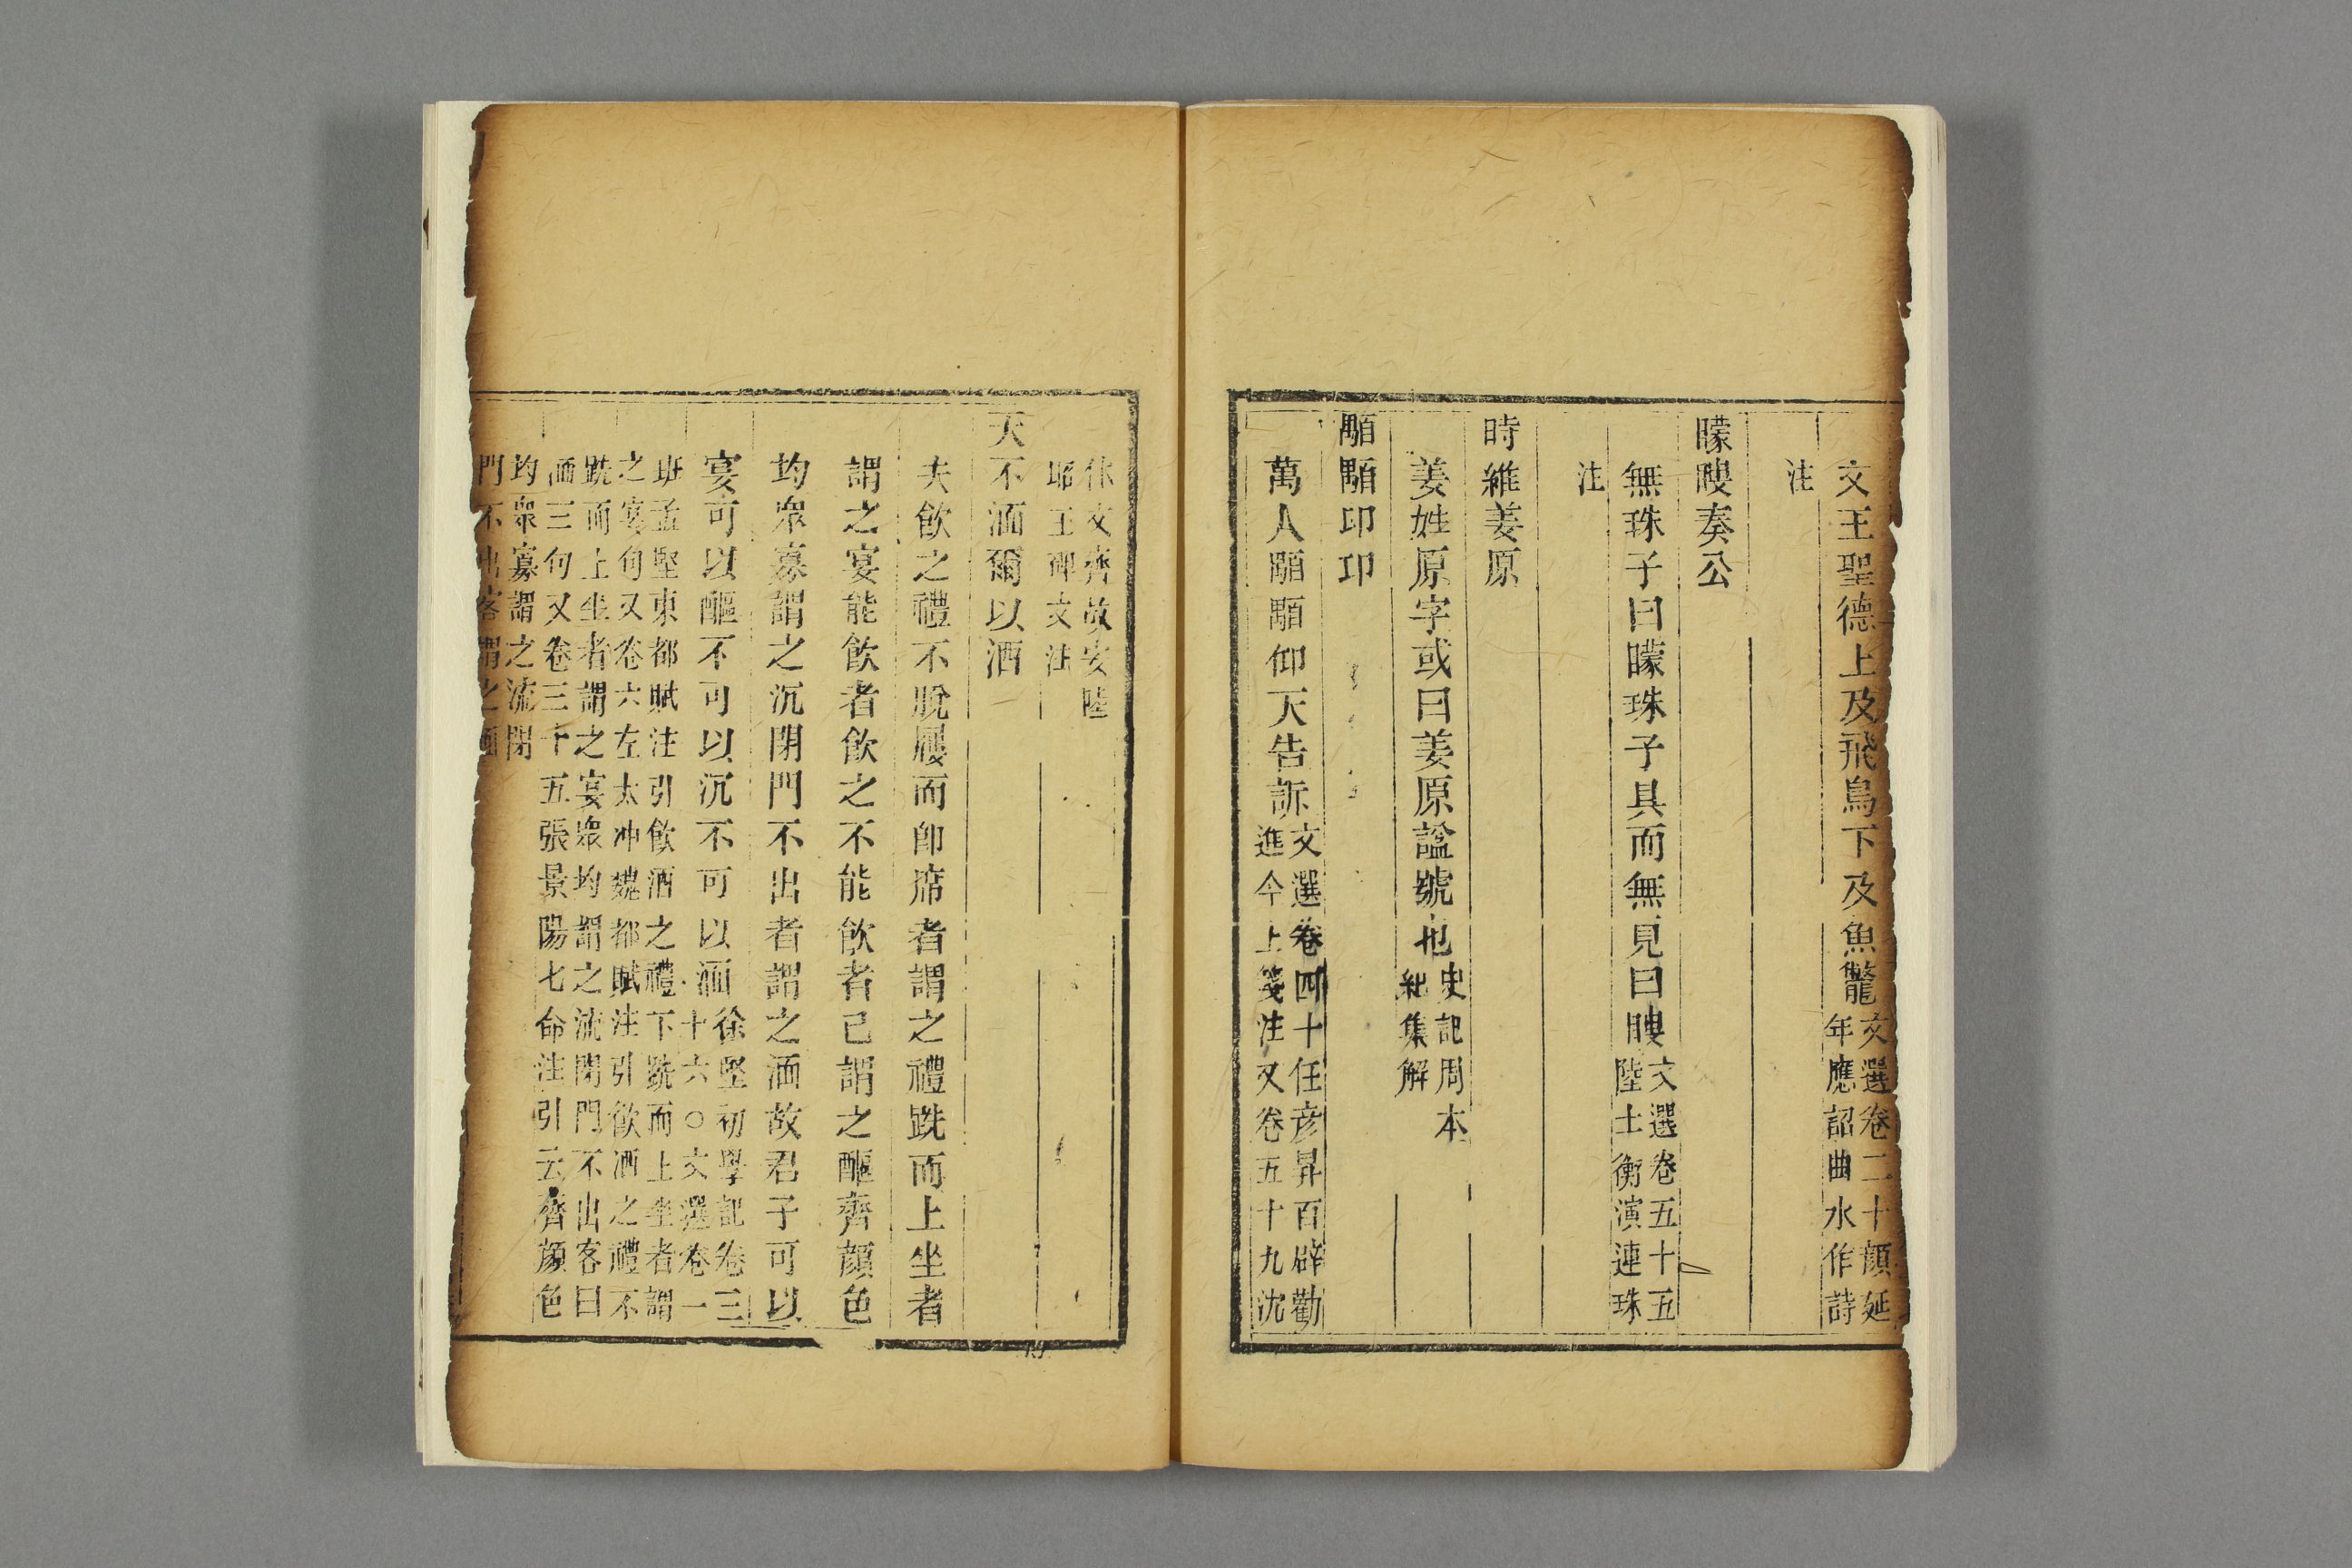 文王聖德上及飛鳥下及魚鼈文選卷二十顏延
年應詔曲水作詩
注
矇瞍奏公
無珠子曰矇珠子具而無見曰瞍文選卷五十五
陸士衡演連珠
注
時維姜原
姜姓原字或曰姜原諡號也史記周本
紀集解
顒顒卬卬
萬人顒顒仰天告訴文選卷四十任彥昇百辟勸
進今上箋注又卷五十九沈
休文齊故安陸
昭王碑文注
天不湎爾以酒
夫飲之禮不脫屨而卽席者謂之禮跣而上坐者
謂之宴能飲者飲之不能飲者已謂之醧齊顏色
均眾寡謂之沉閉門不出者謂之湎故君子可以
宴可以醧不可以沉不可以湎徐堅初學記卷三
十六○文選卷一
班孟堅東都賦注引飲酒之禮下跣而上坐者謂
之宴句又卷六左太沖魏都賦注引飲酒之禮不
跣而上坐者謂之宴眾均謂之流閉門不出客曰
湎三句又卷三十五張景陽七命注引云齊顏色
均眾寡謂之流閉
門不出客謂之湎